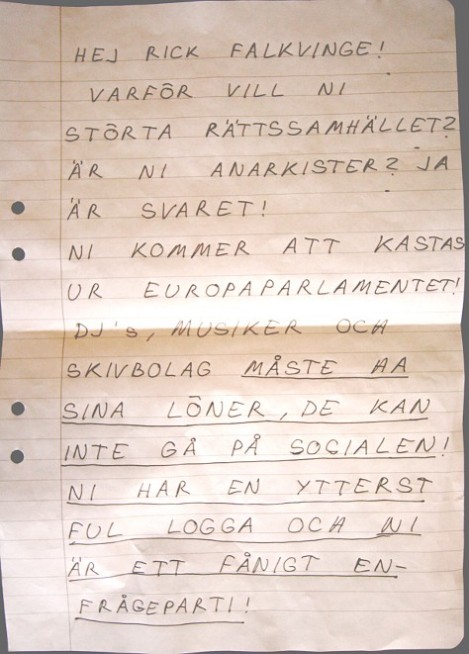 HEJ RICK FALKVINGE!
VARFÖR VILL NI
STÖRTA RÄTTSSAMHÄLLET?
ÄR NI ANARKISTER? JA
ÄR SVARET!
NI KOMMER ATT KASTAS
UR EUROPAPARLAMENTET!
DJ's, MUSIKER OCH
SKIVBOLAG MÅSTE HA
SINA LÖNER, DE KAN
INTE GÅ PÅ SOCIALEN!
NI HAR EN YTTERST
FUL LOGGA OCH NI
ÄR ETT FÅNIGT EN-
FRÅGEPARTI!